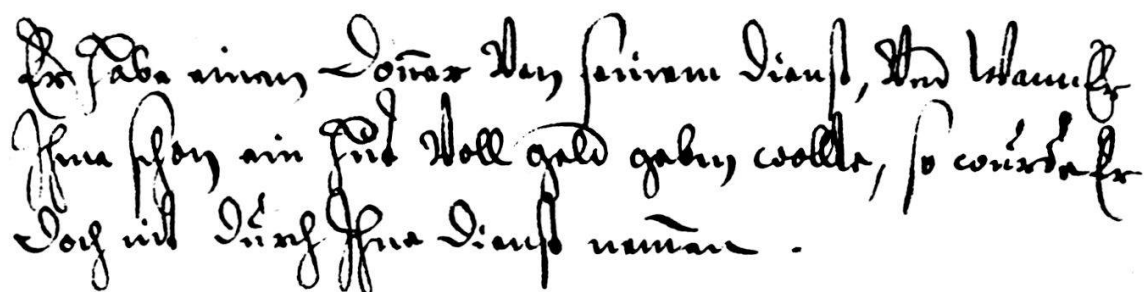 Er habe einen Doñer Von seinem dienst, Vnd Wann Er
Ihme schon ein hut Voll geld geben wollte, so würde Er
doch nit durch Ihne dienst nem̄en .